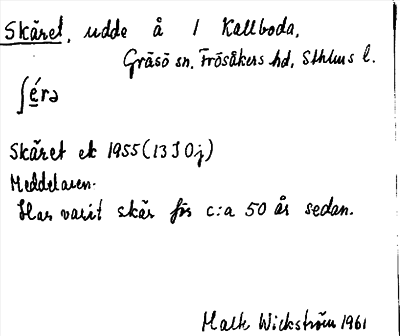 Skäret, udde å 1 Kallboda,
Gräsö sn, Frösåkers hd, Sthlms l.
ʃé̱rə
Skäret ek 1955 (13 I 0 j)
Meddelaren.
Har varit skär för c:a 50 år sedan.
Wickström 1961